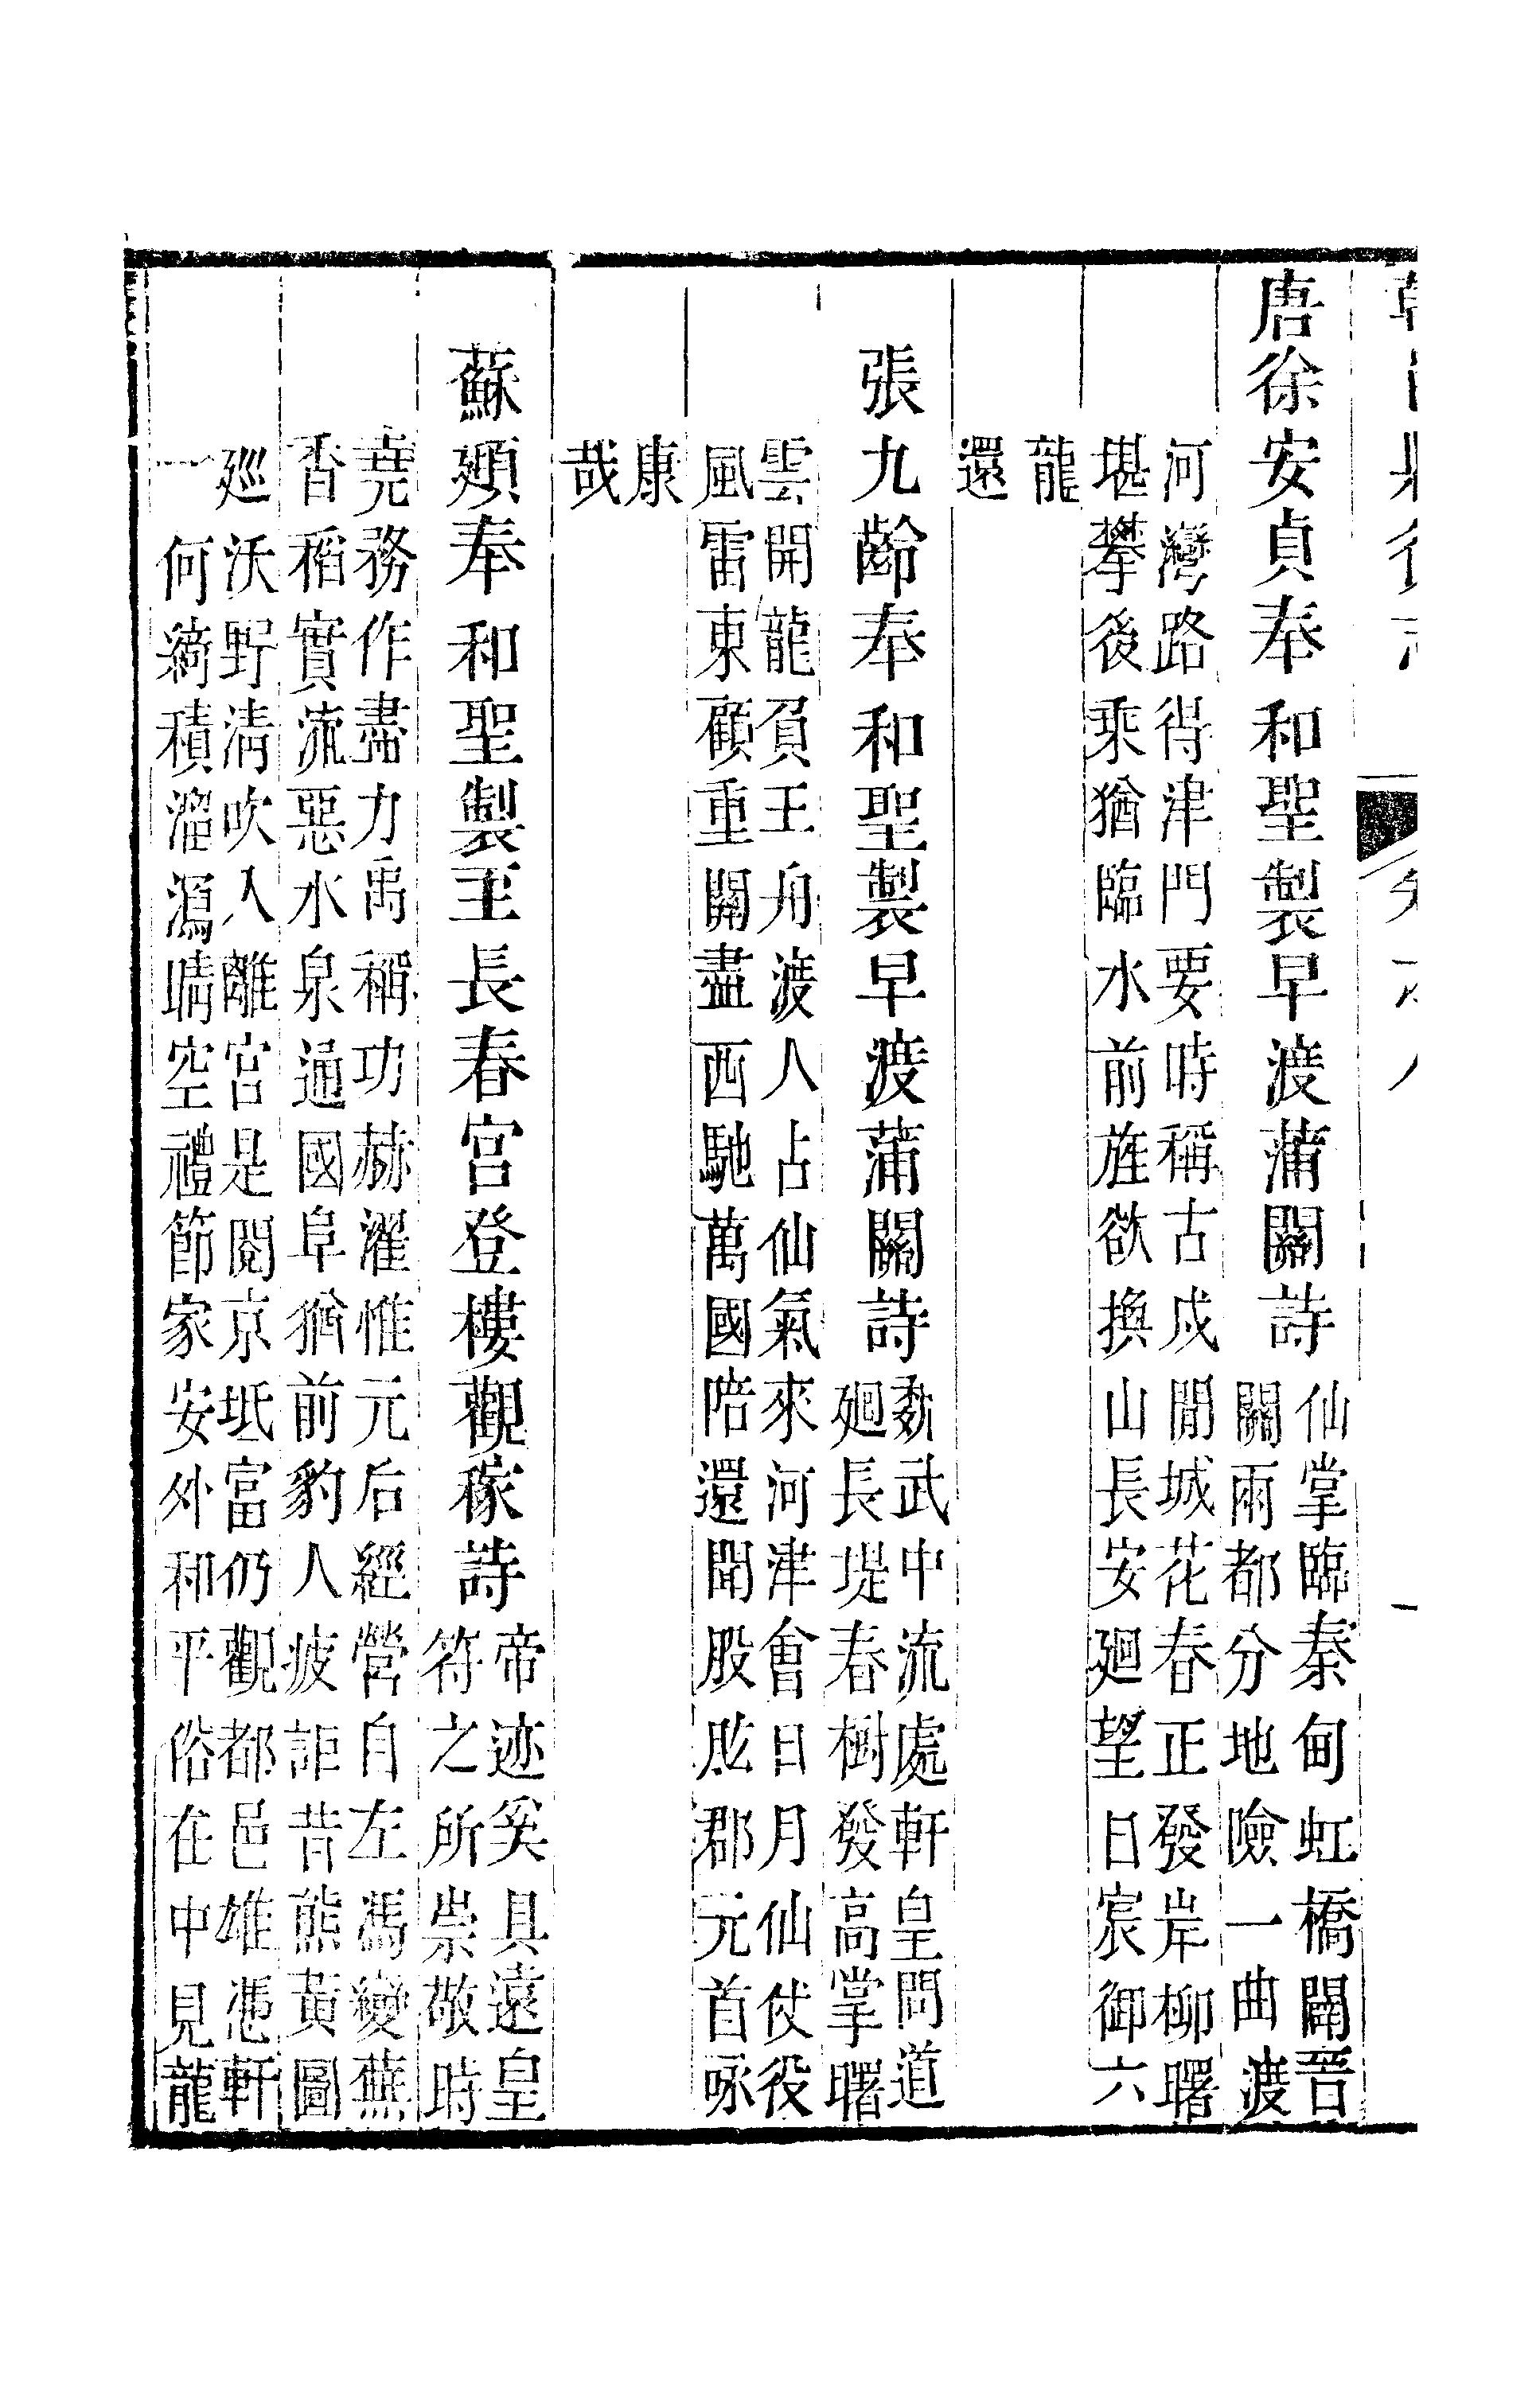 唐徐安貞奉和聖製早渡蒲關詩
仙掌臨秦甸虹橋闢晉
關雨都分地險一曲渡
河灣路得津門要時稱古戍閒城花春正發岸柳曙
堪攀後乘猶臨水前旌欲換山長安廻望日宸御六
龍
還
張九齡奉和聖製早渡蒲關詩
魏武中流處軒皇問道
廻長堤春樹發高掌曙
雲開龍負王舟渡人占仙氣來河津會日月仙仗役
風雷東顧重關盡西馳萬國陪還聞股肱郡元首咏
康
哉
蘇頲奉和聖製至長春宮登樓觀稼詩
帝迹奚具遠皇
符之所崇敬時
堯務作盡力禹稱功赫濯惟元后經營自左馮變蕪
香稻實流惡水泉通國阜猶前豹人疲詎昔熊黃圖
廵沃野清吹入離宮是閱京坻富仍觀都邑雄憑軒
一何綺積溜瀉晴空禮節家安外和平俗在中見龍